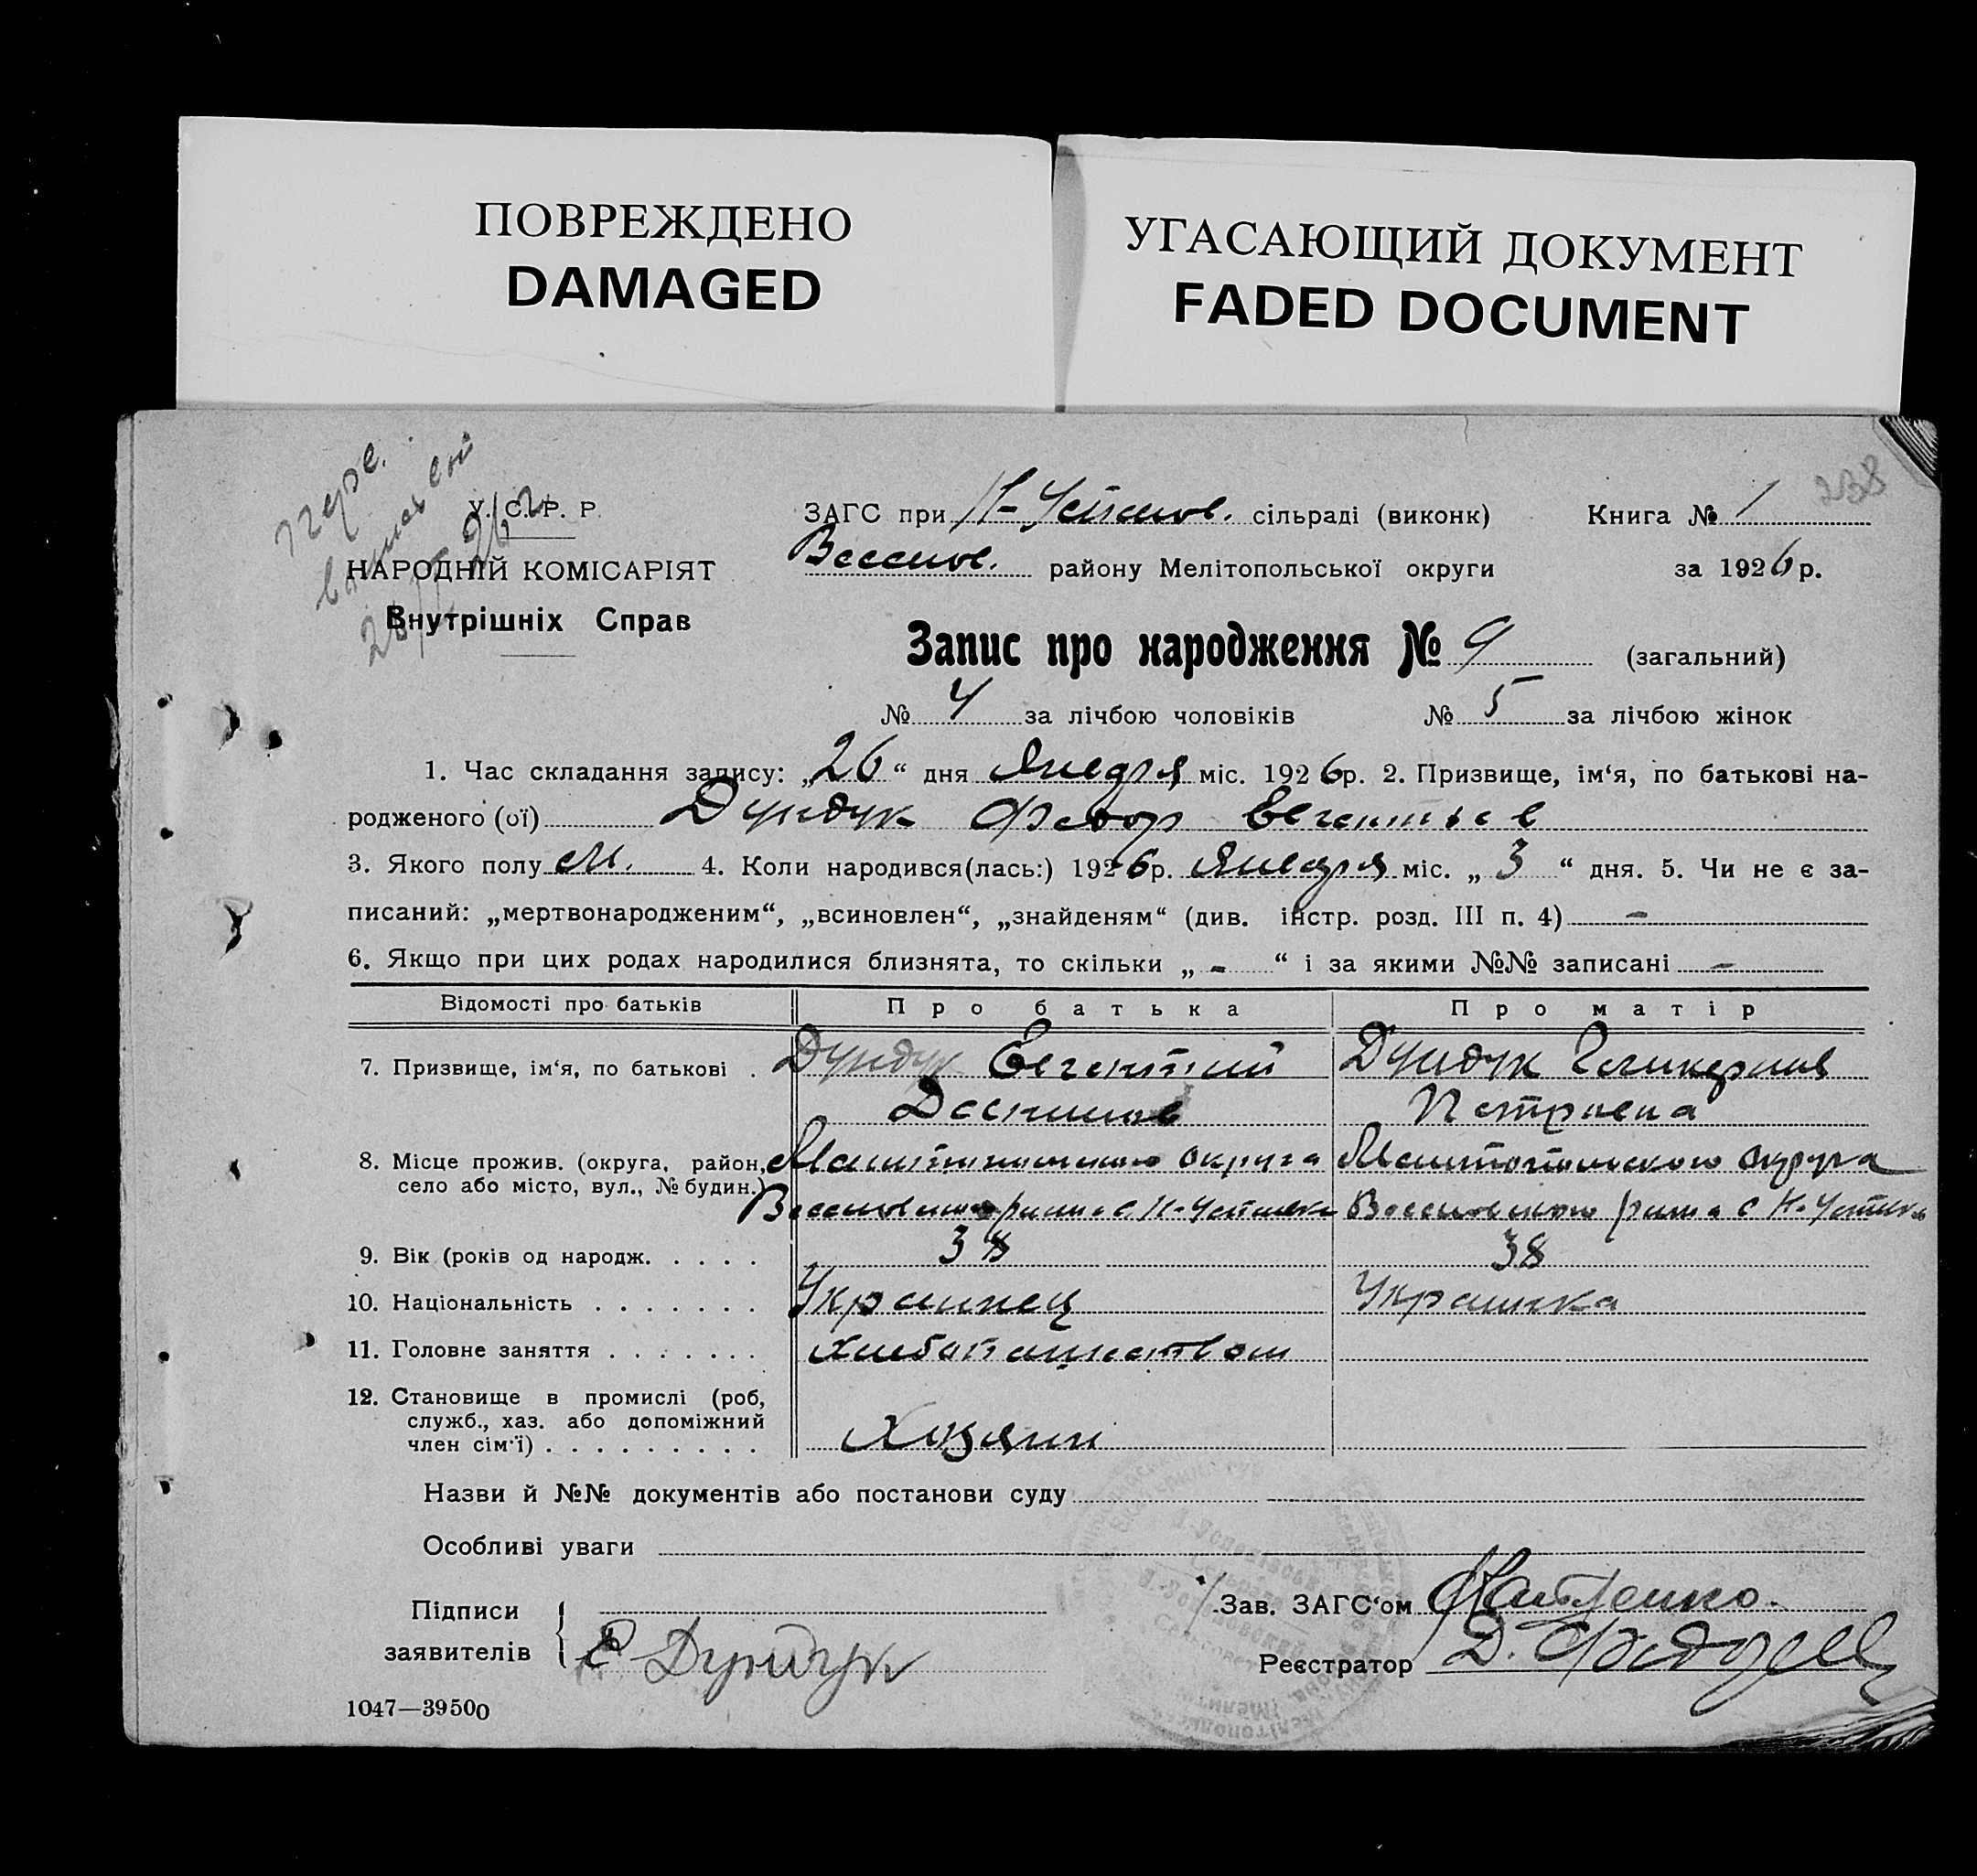 ПОВРЕЖДЕНО
DAMAGED
УГАСАЮЩИЙ ДОКУМЕНТ
FADED DOCUMENT
238
У. С. Р. Р.
НАРОДНІЙ КОМІСАРІЯТ
Внутрішніх Справ
ЗАГС при сільраді (виконк) Книга № 1
Веселов. району Мелітопольської округи за 1926 р.
Запис про народження № 9 (загальний)
№ 4 за лічбою чоловіків № 5 за лічбою жінок
1. Час складання запису: „26“ дня Января міс. 1926р. 2. Призвище, ім‘я, по батькові на-
родженого (ої) Дундук Федор
3. Якого полу М. 4. Коли народився(лась:) 1926р. Января міс. „ 3 “ дня. 5. Чи не є за-
писаний: „мертвонародженим“, „всиновлен“, „знайденям“ (див. інстр. розд. III п. 4) -
6. Якщо при цих родах народилися близнята, то скільки „ - “ і за якими №№ записані -
Відомості про батьків Про батька Про матір
7. Призвище, ім‘я, по батькові . Дундук Дундук
Петровна
8. Місце прожив. (округа, район, Мелитопольского округа Мелитопольского округа
село або місто, вул., № будин.) Веселовского района с Веселовского района с
9. Вік (років од народж. . . . . 38 38
10. Національність . . . . . . . Украинец Украинка
11. Головне заняття . . . . . . . хлебопашеством
12. Становище в промислі (роб,
служб., хаз. або допоміжний
член сім‘ї) . . . . . . . . . Хозяин
Назви й №№ документів або постанови суду
Особливі уваги
Підписи
заявителів Дундук
Зав. ЗАГС‘ом
Реєстратор Д.
1047—39500